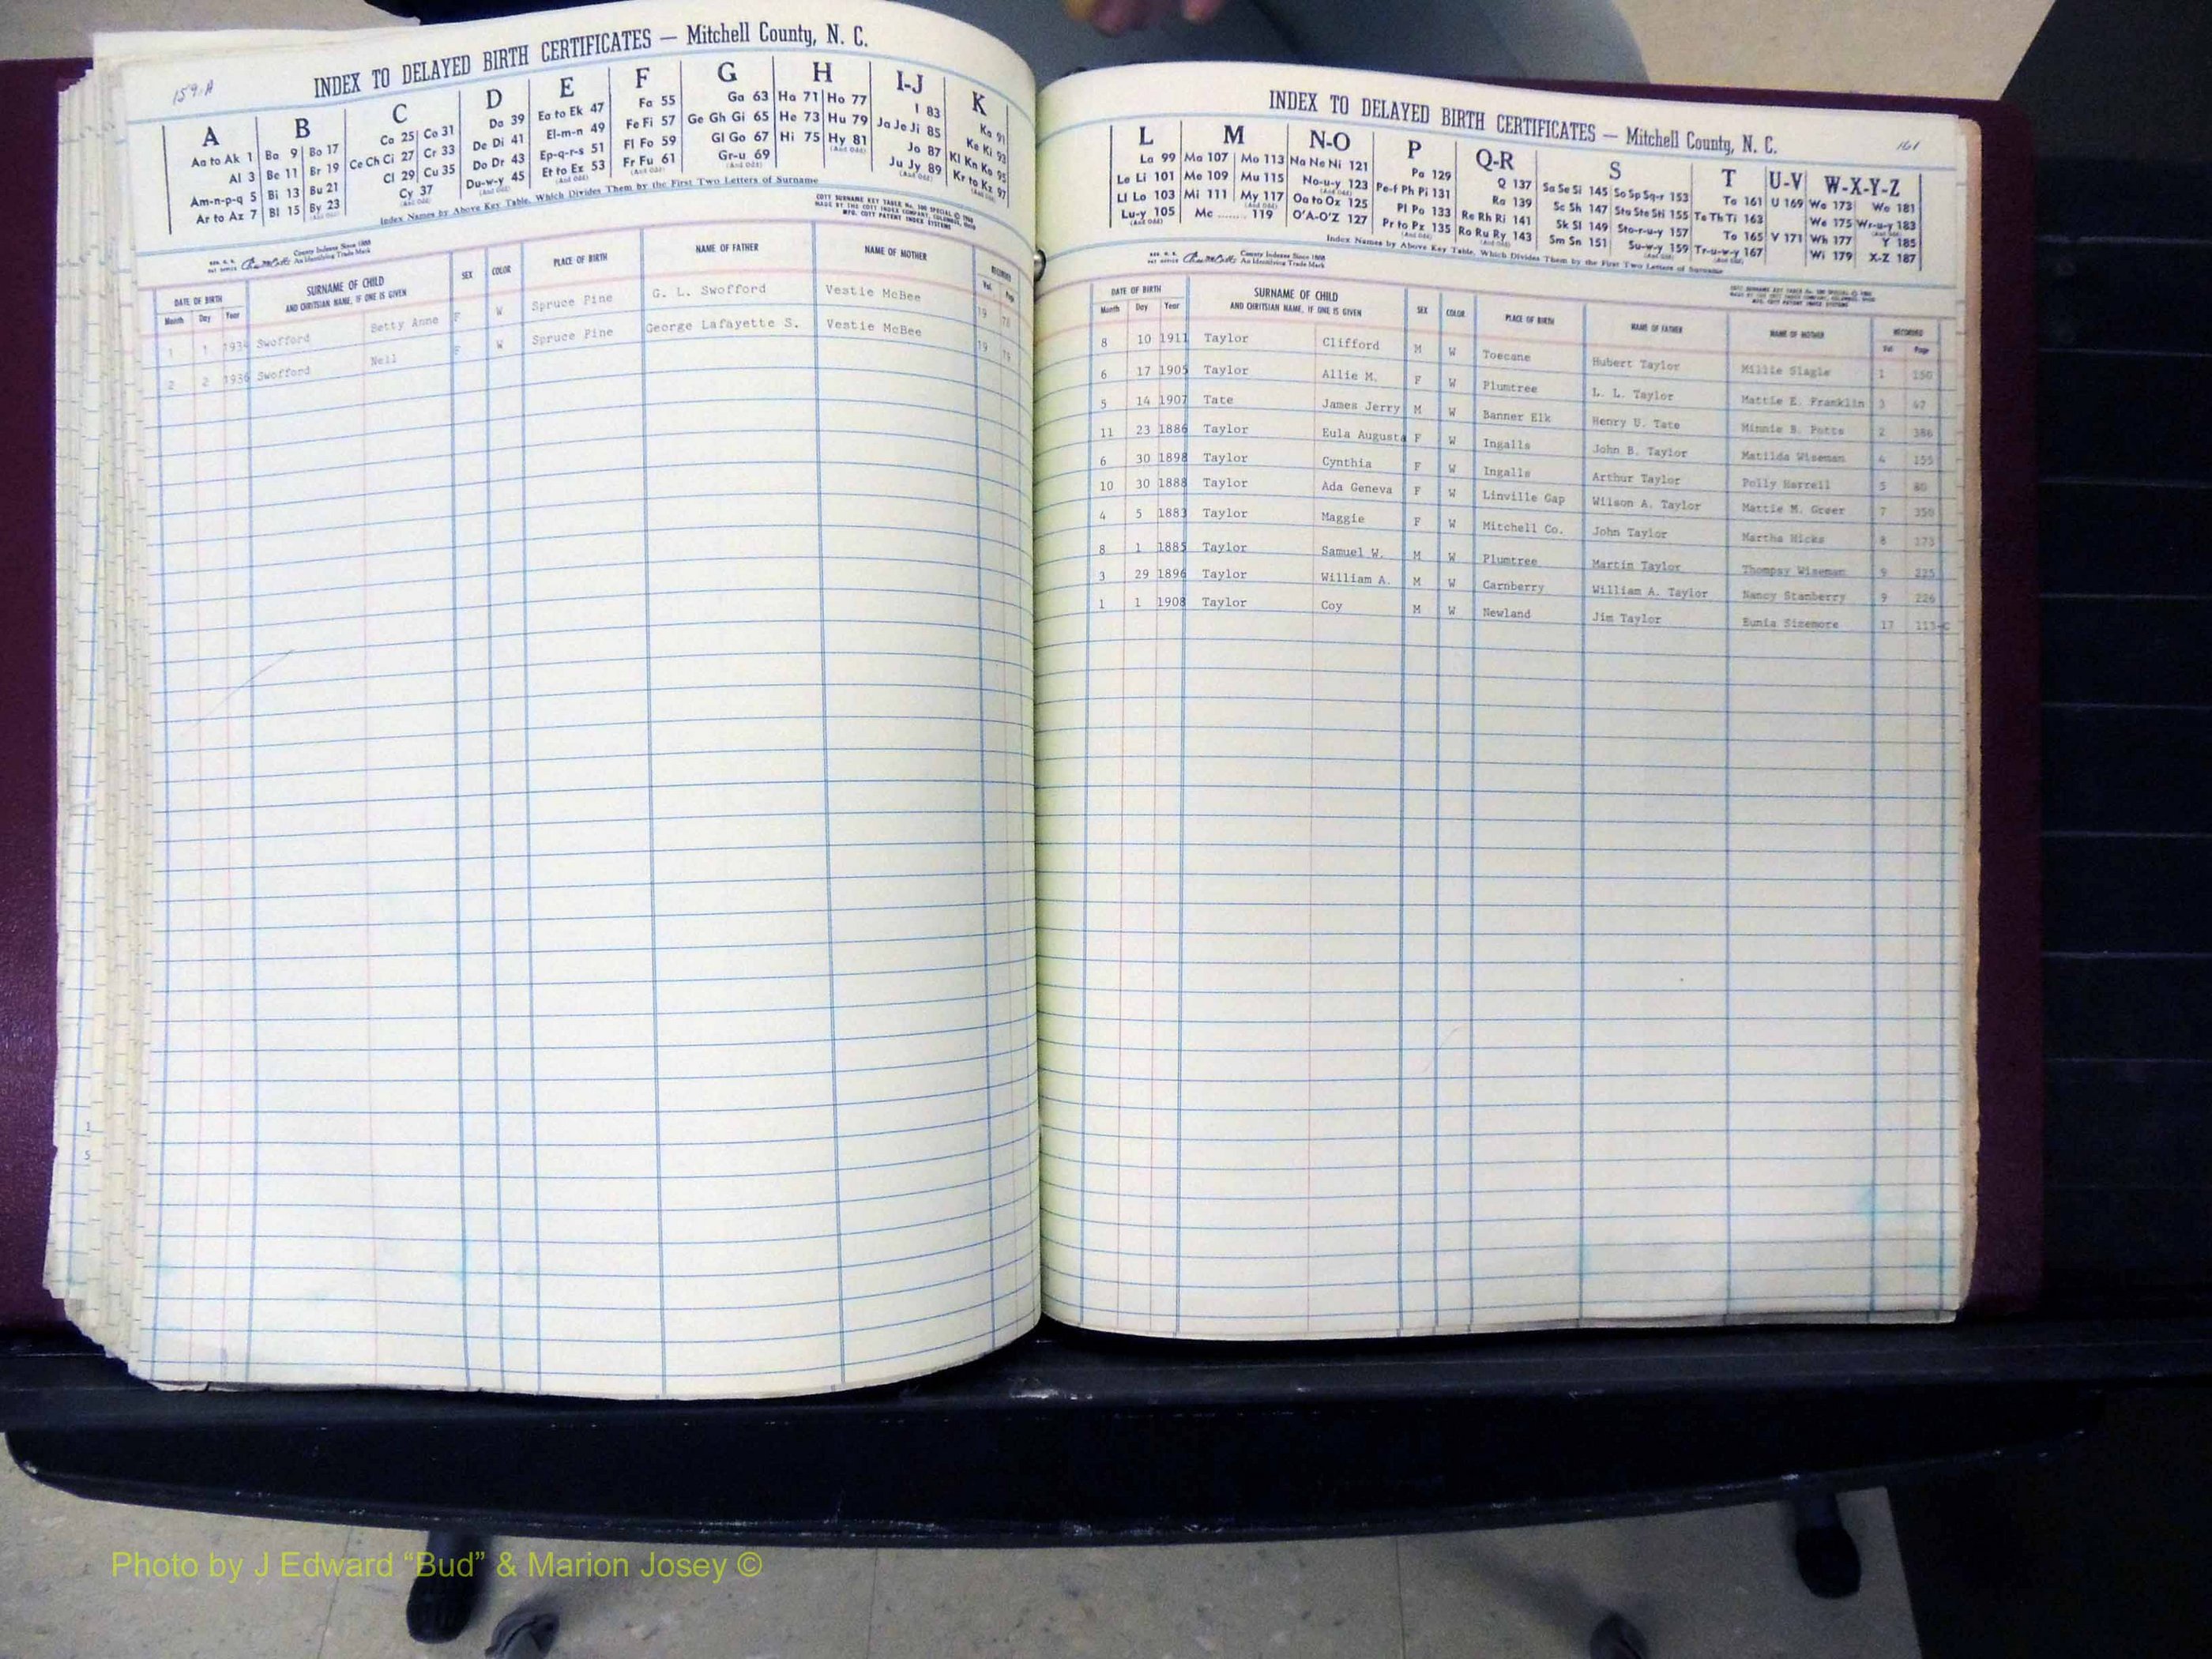 159-A
INDEX TO DELAYED BIRTH CERTIFICATES — Mitchell County, N. C.
A B C D E F G H I-J K
Aa to Ak 1 Ba 9 Bo 17 Ca 25 Co 31 Da 39 Ea to Ek 47 Fa 55 Ga 63 Ha 71 Ho 77 I 83 Ka 91
Al 3 Be 11 Br 19 Ce Ch Ci 27 Cr 33 De Di 41 El-m-n 49 Fe Fi 57 Ge Gh Gi 65 He 73 Hu 79 Ja Je Ji 85 Ke Ki 93
Am-n-p-q 5 Bi 13 Bu 21 Cl 29 Cu 35 Do Dr 43 Ep-q-r-s 51 Fl Fo 59 Gl Go 67 Hi 75 Hy 81 Jo 87 Kl Kn Ko 95
Ar to Az 7 Bl 15 By 23 Cy 37 Du-w-y 45 Et to Ez 53 Fr Fu 61 Gr-u 69 Ju Jy 89 Kr to Kz 97
Index Names by Above Key Table, Which Divides Them by the First Two Letters of Surname
COTT SURNAME KEY TABLE No. 100 SPECIAL
MADE BY THE COTT INDEX COMPANY, COLUMBUS, OHIO
MFG. COTT PATENT INDEX SYSTEMS
County Indexes Since 1888
An Identifying Trade Mark
DATE OF BIRTH SURNAME OF CHILD AND CHRITSIAN NAME, IF ONE IS GIVEN SEX COLOR PLACE OF BIRTH NAME OF FATHER NAME OF MOTHER RECORDED
Month Day Year Vol. Page
1 1 1934 Swofford Betty Anne F W Spruce Pine G. L. Swofford Vestie McBee 19 78
2 2 1936 Swofford Nell F W Spruce Pine George Lafayette S. Vestie McBee 19 79
1
5
INDEX TO DELAYED BIRTH CERTIFICATES — Mitchell County, N. C.
161
L M N-O P Q-R S T U-V W-X-Y-Z
La 99 Ma 107 Mo 113 Na Ne Ni 121 Pa 129 Q 137 Sa Se Si 145 So Sp Sq-r 153 Ta 161 U 169 Wa 173 Wo 181
Le Li 101 Me 109 Mu 115 No-u-y 123 Pe-f Ph Pi 131 Ra 139 Sc Sh 147 Sta Ste Sti 155 Te Th Ti 163 We 175 Wr-u-y 183
Ll Lo 103 Mi 111 My 117 Oa to Ox 125 Pl Po 133 Re Rh Ri 141 Sk Sl 149 Sto-r-u-y 157 To 165 V 171 Wh 177 Y 185
Lu-y 105 Mc ........ 119 O'A-O'Z 127 Pr to Px 135 Ro Ru Ry 143 Sm Sn 151 Su-w-y 159 Tr-u-w-y 167 Wi 179 X-Z 187
Index Names by Above Key Table, Which Divides Them by the First Two Letters of Surname
County Indexes Since 1888
An Identifying Trade Mark
DATE OF BIRTH SURNAME OF CHILD AND CHRITSIAN NAME, IF ONE IS GIVEN SEX COLOR PLACE OF BIRTH NAME OF FATHER NAME OF MOTHER RECORDED
Month Day Year Vol. Page
8 10 1911 Taylor Clifford M W Toecane Hubert Taylor Millie Slagle 1 150
6 17 1905 Taylor Allie M. F W Plumtree L. L. Taylor Mattie E. Franklin 3 47
5 14 1907 Tate James Jerry M W Banner Elk Henry U. Tate Minnie B. Potts 2 386
11 23 1886 Taylor Eula Augusta F W Ingalls John B. Taylor Matilda Wiseman 4 155
6 30 1898 Taylor Cynthia F W Ingalls Arthur Taylor Polly Harrell 5 80
10 30 1888 Taylor Ada Geneva F W Linville Gap Wilson A. Taylor Mattie M. Greer 7 350
4 5 1883 Taylor Maggie F W Mitchell Co. John Taylor Martha Hicks 8 173
8 1 1885 Taylor Samuel W. M W Plumtree Martin Taylor Thompsy Wiseman 9 225
3 29 1896 Taylor William A. M W Carnberry William A. Taylor Nancy Stanberry 9 226
1 1 1908 Taylor Coy M W Newland Jim Taylor Eunia Sizemore 17 113-C
Photo by J Edward “Bud” & Marion Josey ©